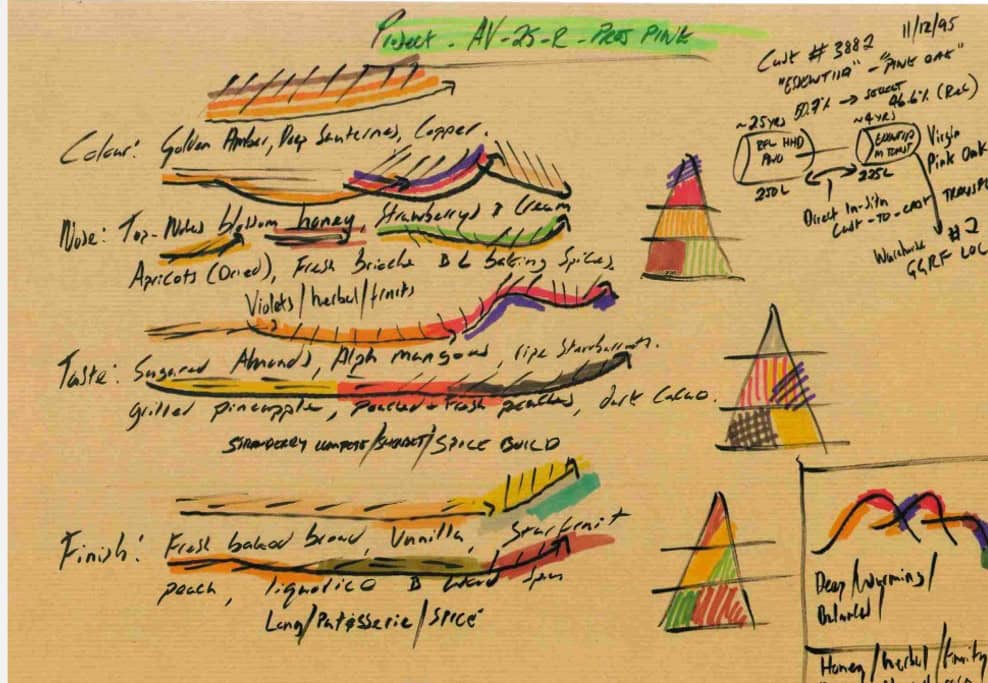 Project - AV-25-R - PROJ PINK
11/12/95
Cask # 3882
"ESSENTIIA" - "PINK OAK"
50.7% → SELECT
46.6% (Rec)
~25YRS
~4YRS
RFL HHD
M TOAST
250L
225L
Virgin
Pink Oak
Direct In-Situ
Cask-TO-CASK TRANSFE
Warehouse #2
GGRF LOC
Colour: Golden Amber, Deep Sauternes, Copper.
Nose: Top-Notes blossom honey, Strawberrys & Cream
Apricots (Dried), Fresh brioche & baking Spices,
Violets/herbal/fruits
Taste: Sugared Almonds, Alph mangoes, ripe Strawberries.
grilled pineapple, poached + Fresh peaches, dark Cacao.
STRAWBERRY COMPOTE/SHERBET/SPICE BUILD
Finish: Fresh baked bread, Vanilla, Starfruit
peach, liquorice &
Long/Patisserie/SPICE
Deep/Warming/
Balanced/
Honey/herbal/fruity